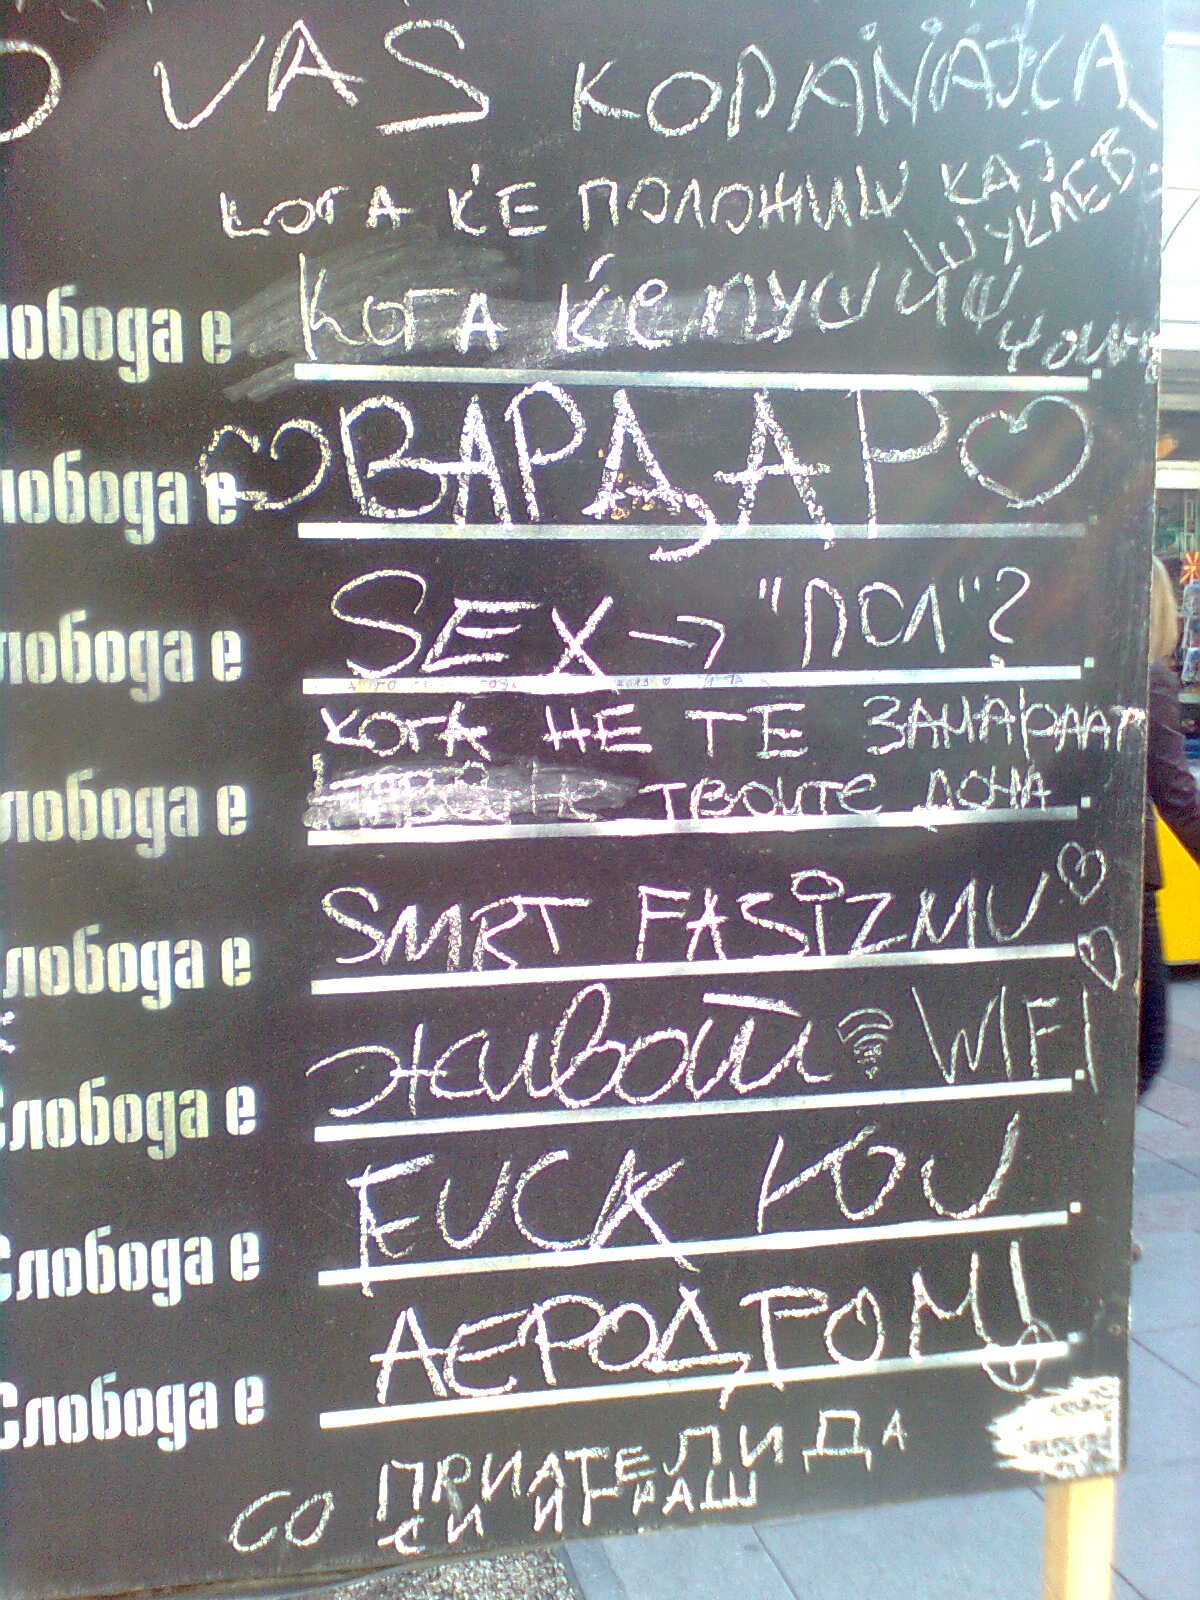 VAS КОПАЧКА
КОГА ЌЕ ПОЛОЖИШ КАЈ
ШУКЛЕВ.
лобода е КОГА ЌЕ ПУШИШ
лобода е ВАРДАР
лобода е SEX → "ПОЛ"?
КОГА НЕ ТЕ ЗАМАРААТ
лобода е ТВОИТЕ ДОМА.
лобода е SMRT FAŠIZMU
Слобода е живот WIFI
Слобода е FUCK YOU
Слобода е АЕРОДРОМ!
СО ПРИАТЕЛИ ДА
СИ ИГРАШ